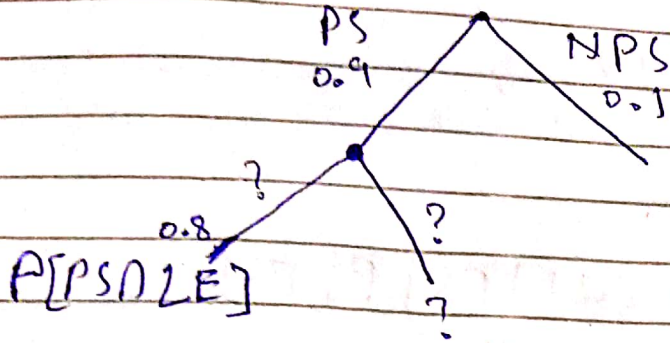 PS
0.9
NPS
0.1
?
0.8
?
P[PS∩LE]
?